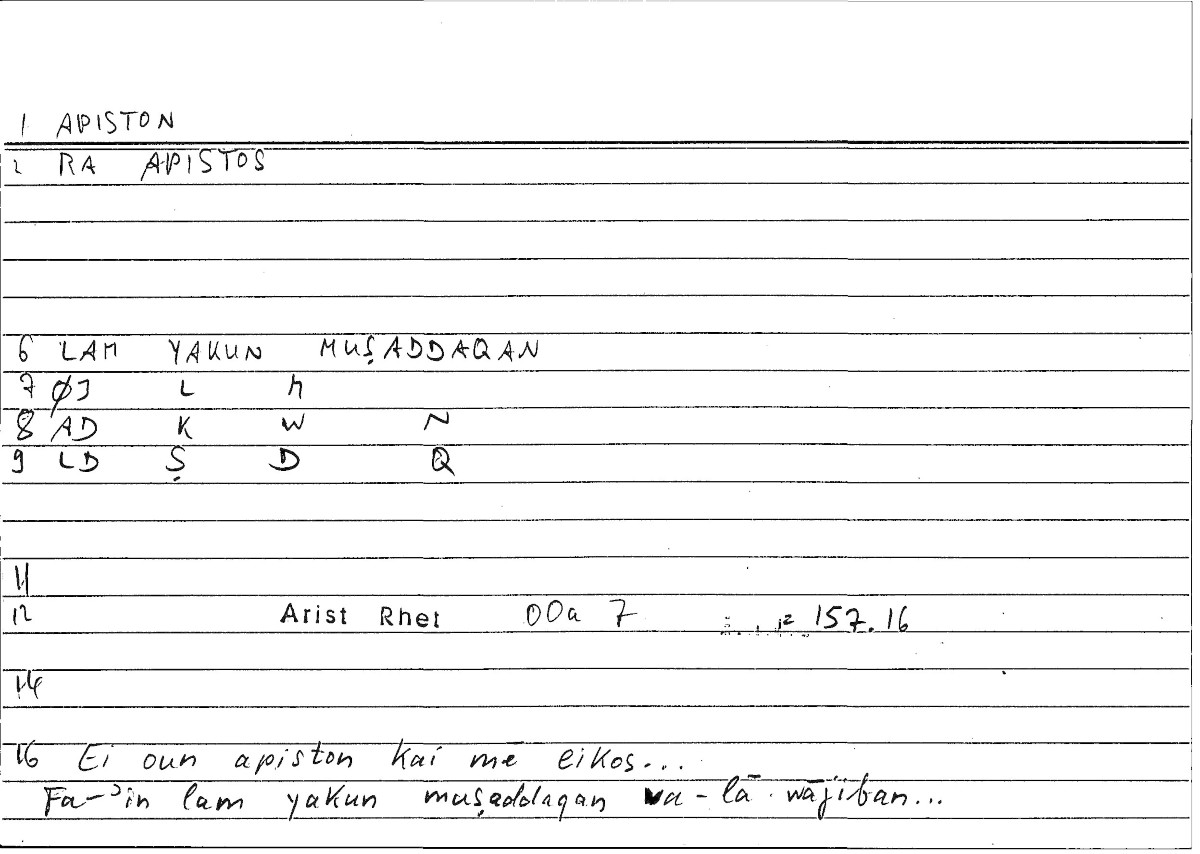 1 APISTON
2 RA APISTOS
6 LAM YAKUN MUṢADDAQAN
7 ØJ L M
8 AD K W N
9 LD Ṣ D Q
11
12 Arist Rhet 00a 7 157.16
14
16 Ei oun apiston kai mē eikos...
Fa-ʾin lam yakun muṣaddaqan wa-lā wājiban...